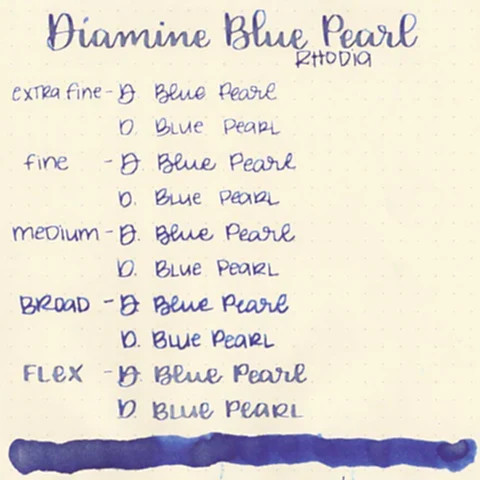 Diamine Blue Pearl
RHODIA
extra fine - D. Blue Pearl
D. Blue Pearl
fine - D. Blue Pearl
D. Blue Pearl
medium - D. Blue Pearl
D. Blue Pearl
BROAD - D. Blue Pearl
D. Blue Pearl
FLEX - D. Blue Pearl
D. Blue Pearl